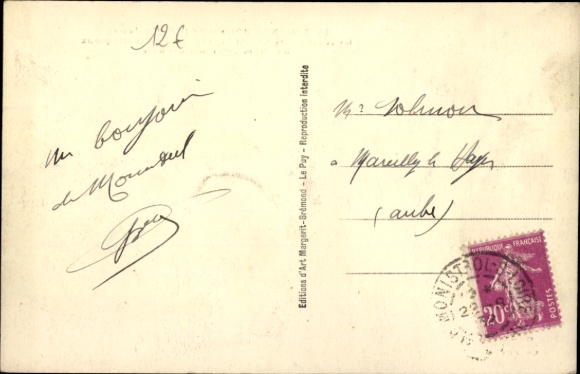 12€
un bonjour
de Monistrol
Editions d'Art Margerit-Brémond - Le Puy - Reproduction interdite
à Marcilly le Hayer
(aube)
REPUBLIQUE FRANÇAISE
20c
POSTES
MONISTROL